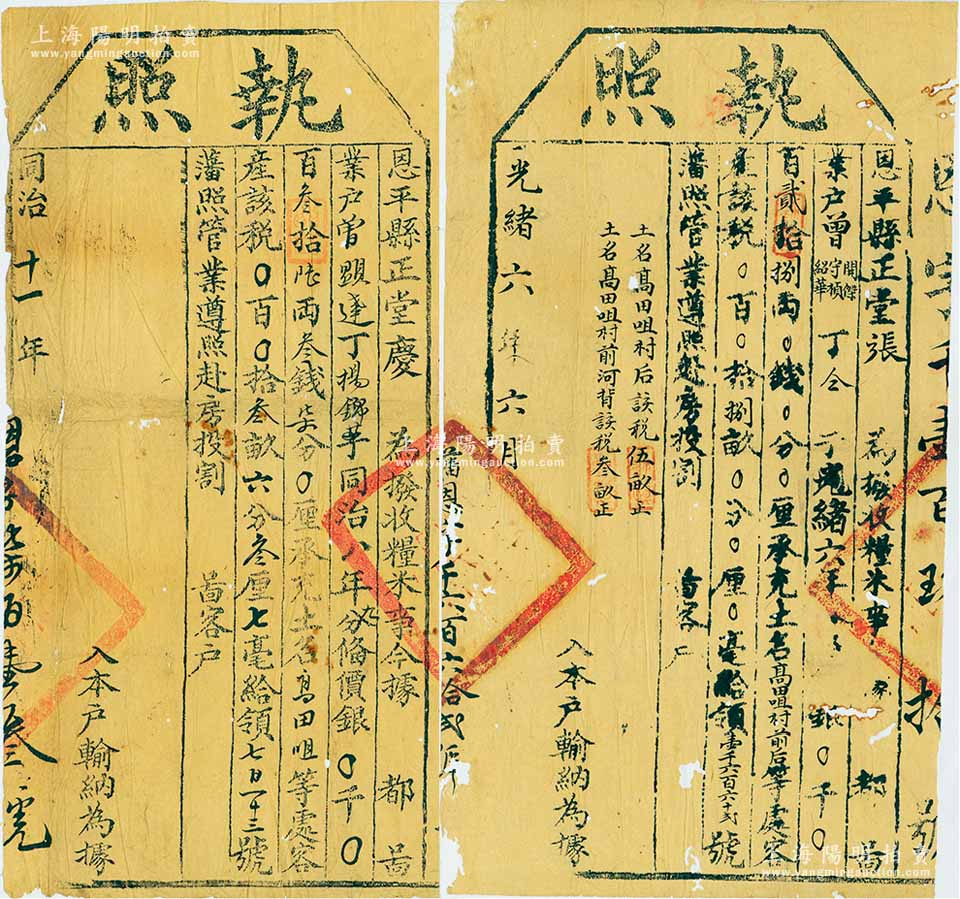 上海陽明拍賣
www.yangmingauction.com
執照
恩平縣正堂慶 為撥收糧米事今據 都 啚
業户曾顕達丁楊 同治八年分備價銀〇千〇
百叁拾陸兩叁錢柒分〇厘承充土名高田咀等處客
產該税〇百〇拾叁畝六分叁厘七毫給領七百一十三號
藩照管業遵照赴房投割 啚客户
入本户輸納為據
同治十一年
執照
恩平縣正堂張 為撥收糧米事 都啚
業户曾開傑守禎紹華丁 今 光緒六年 銀〇千〇
百貳拾捌兩〇錢〇分〇厘承充土名高田咀村前后等處客
產該税〇百〇拾捌畝〇分〇厘〇毫給領壹千六百六十弍號
藩照管業遵照赴房投割 啚客户
土名高田咀村后該税伍畝正
土名高田咀村前河背該税叁畝正
入本户輸納為據
光緒六年六月
上海陽明拍賣
www.yangmingauction.com
上海陽明拍賣